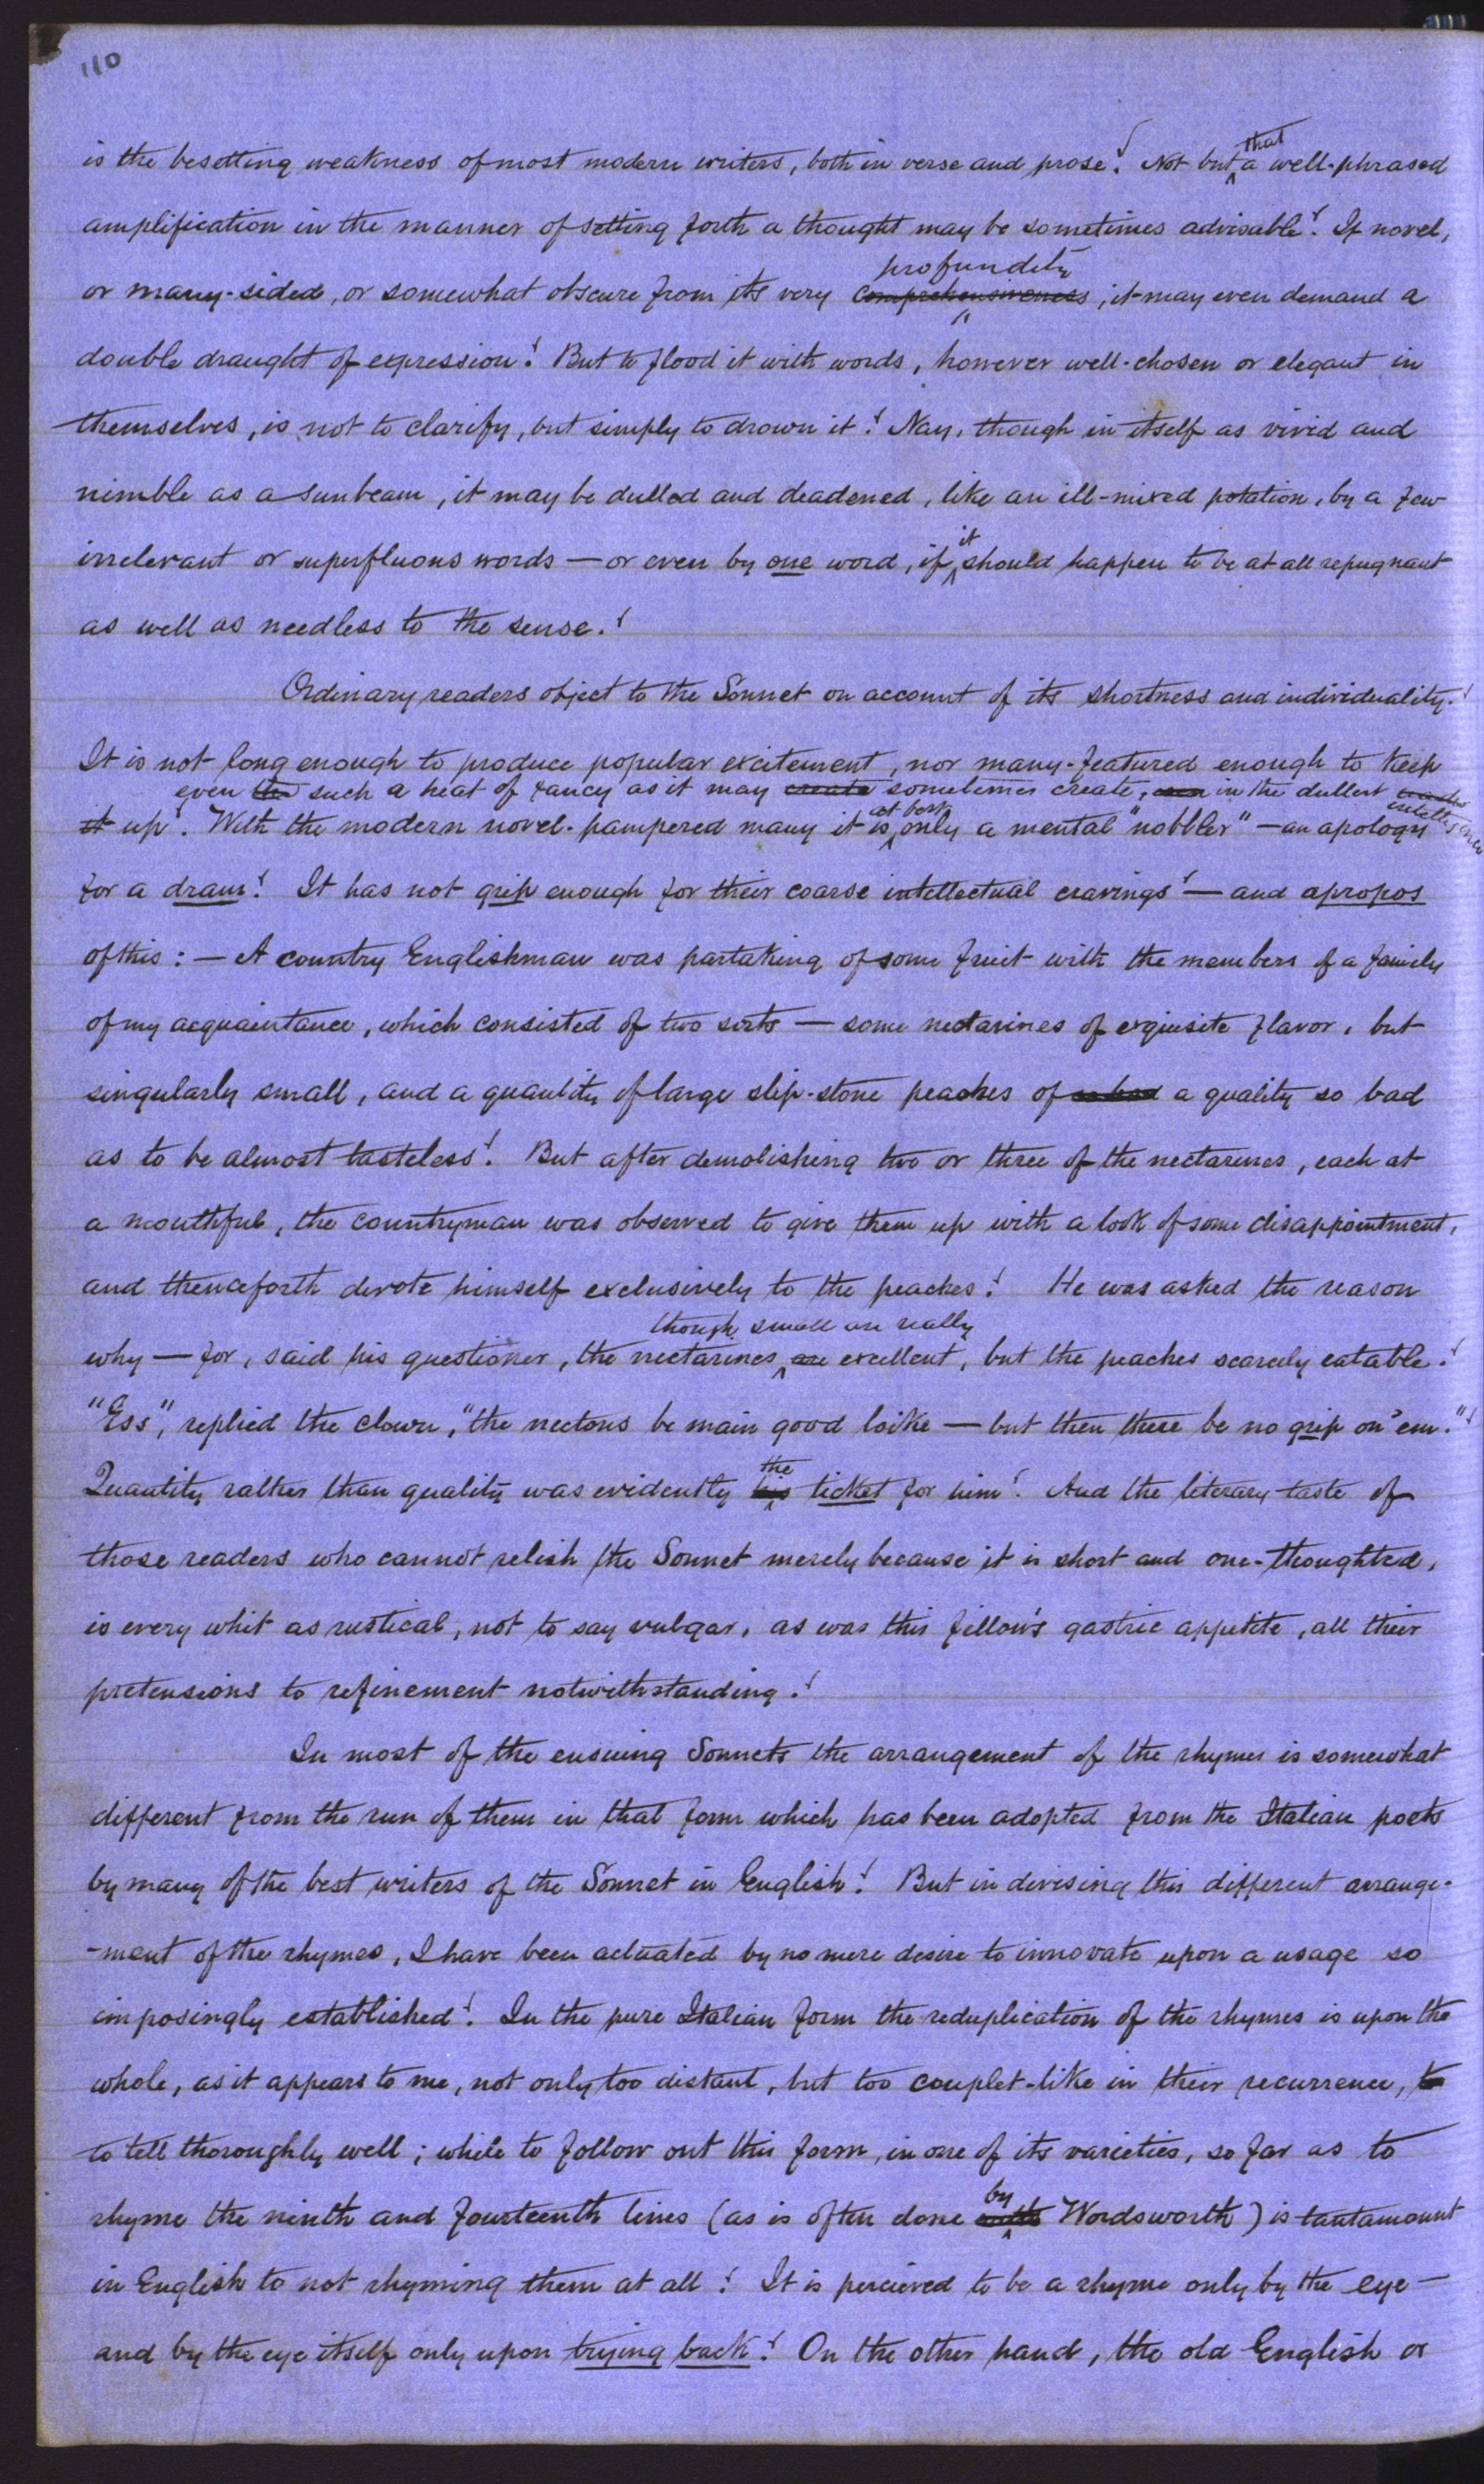 110
is the besetting weakness of most modern writers, both in verse and prose. Not but that a well-phrased
amplification in the manner of setting forth a thought may be sometimes advisable. If novel,
profundity
or many-sided, or somewhat obscure from its very comprehensiveness, it may even demand a
double draught of expression. But to flood it with words, however well-chosen or elegant in
themselves, is not to clarify, but simply to drown it. Nay, though in itself as vivid and
nimble as a sunbeam, it may be dulled and deadened, like an ill-mixed potation, by a few
irrelevant or superfluous words — or even by one word, if it should happen to be at all repugnant
as well as needless to the sense.
Ordinary readers object to the Sonnet on account of its shortness and individuality.
It is not long enough to produce popular excitement, nor many-featured enough to keep
even the such a heat of fancy as it may create sometimes create, even in the dullest intelligences
it up. With the modern novel-pampered many it is at best only a mental "nobbler" — an apology
for a dram. It has not grip enough for their coarse intellectual cravings — and apropos
of this: — A country Englishman was partaking of some fruit with the members of a family
of my acquaintance, which consisted of two sorts — some nectarines of exquisite flavor, but
singularly small, and a quantity of large slip-stone peaches of so bad a quality so bad
as to be almost tasteless. But after demolishing two or three of the nectarines, each at
a mouthful, the countryman was observed to give them up with a look of some disappointment,
and thenceforth devote himself exclusively to the peaches. He was asked the reason
though small are really
why — for, said his questioner, the nectarines are excellent, but the peaches scarcely eatable.
"Ess", replied the clown, "the nectons be main good loike — but then there be no grip on 'em."
Quantity rather than quality was evidently his the ticket for him. And the literary taste of
those readers who cannot relish the Sonnet merely because it is short and one-thoughted,
is every whit as rustical, not to say vulgar, as was this fellow's gastric appetite, all their
pretensions to refinement notwithstanding.
In most of the ensuing Sonnets the arrangement of the rhymes is somewhat
different from the run of them in that form which has been adopted from the Italian poets
by many of the best writers of the Sonnet in English. But in devising this different arrange-
-ment of the rhymes, I have been actuated by no mere desire to innovate upon a usage so
imposingly established. In the pure Italian form the reduplication of the rhymes is upon the
whole, as it appears to me, not only too distant, but too couplet-like in their recurrence, to
to tell thoroughly well; while to follow out this form, in one of its varieties, so far as to
rhyme the ninth and fourteenth lines (as is often done with by Wordsworth) is tantamount
in English to not rhyming them at all. It is percieved to be a rhyme only by the eye —
and by the eye itself only upon trying back. On the other hand, the old English or